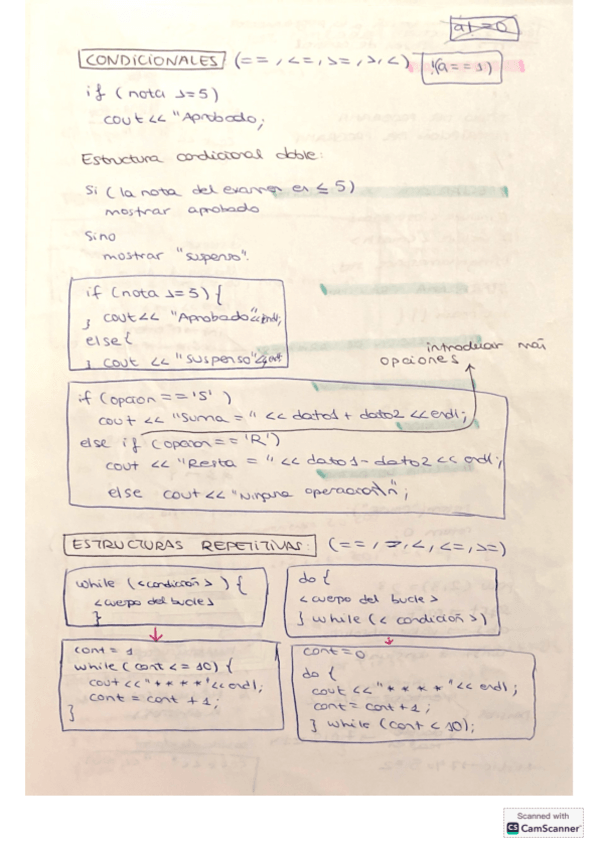 a! = 0
CONDICIONALES (==, <=, >=, >, <) !(a==1)
if (nota >=5)
cout << "Aprobado;
Estructura condicional doble:
Si (la nota del examen es ≤ 5)
mostrar aprobado
Sino
mostrar "suspenso".
if (nota >=5) {
} cout << "Aprobado" << endl;
else {
} cout << "suspenso" << endl
introducir más
opciones
if (opcion == 'S')
cout << "Suma = " << dato1 + dato2 << endl;
else if (opcion == 'R')
cout << "Resta = " << dato1 - dato2 << endl;
else cout << "Ninguna operacion\n";
ESTRUCTURAS REPETITIVAS: (==, >, <, <=, >=)
while (<condición>) {
<cuerpo del bucle>
}
do {
<cuerpo del bucle>
} while (< condición >)
cont = 1
while (cont <= 10) {
cout << "* * * *" << endl;
cont = cont + 1;
}
cont = 0
do {
cout << "* * * *" << endl;
cont = cont + 1;
} while (cont < 10);
Scanned with
CS CamScanner